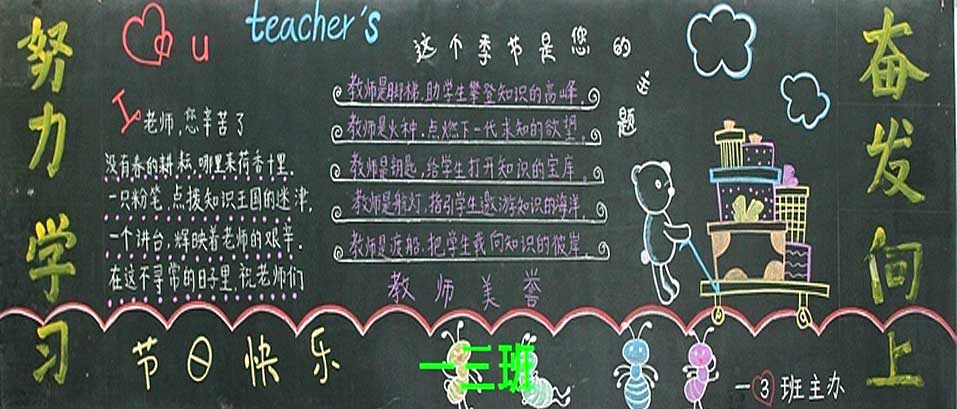 努力学习
I ❤ u
teacher's
这个季节是您的主题
老师,您辛苦了
没有春的耕耘,哪里来荷香十里.
一只粉笔,点拨知识王国的迷津,
一个讲台,辉映着老师的艰辛.
在这不寻常的日子里,祝老师们
节日快乐
教师是脚梯,助学生攀登知识的高峰.
教师是火种,点燃下一代求知的欲望.
教师是钥匙,给学生打开知识的宝库.
教师是航灯,指引学生遨游知识的海洋.
教师是渡船,把学生载向知识的彼岸.
教师美誉
一三班
一3班主办
奋发向上